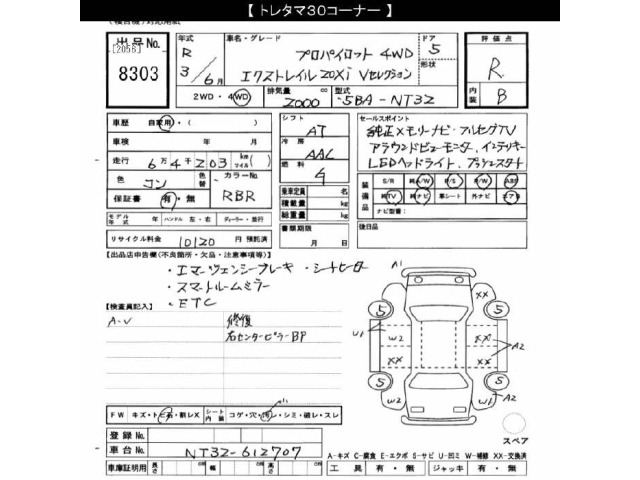 【 トレタマ30コーナー 】
(検合機)対応用紙
出品No. [2056] 8303
年式 R 3/6月
車名・グレード プロパイロット 4WD
エクストレイル 20Xi Vセレクション
ドア 5
形状
評価点 R
内装 B
2WD・4WD
排気量 2000 cc
型式 5BA-NT32
車歴 自家用・( )
車検 年 月
走行 6万4千203 km マイル( )
色 コン
色替
カラーNo. RBR
保証書 有・無
シフト AT
冷房 AAC
燃料
乗車定員 名
積載量 kg
総重量 kg
書類期限 月 日
セールスポイント
純正メモリーナビ・フルセグTV
アラウンドビューモニター、インテリキー
LEDヘッドライト、プッシュスタート
装備品
S/R 純A/W P/S P/W ABS
純TV 純ナビ 革シート 外ナビ エアB
ナビ型番:
モデル年式 年 ハンドル 左・右 ディーラー・並行
リサイクル料金 10120 円 預託済
後日品
【出品店申告欄(不良箇所・欠品・注意事項等)】
・エマージェンシーブレーキ ・シートヒーター
・スマートルームミラー
・ETC
【検査員記入】
A-V
修復
右センターピラーBP
A1
XX XX
5 5
U1 W2 XX
W2 XX XX A2
5 5
W2 W1 A2
スペア
FW キズ・トビ石・割レX
シート内装 コゲ・穴・汚レ・シミ・破レ・スレ
登録No.
車台No. NT32-612707
A-キズ C-腐食 E-エクボ S-サビ U-凹ミ W-補修 XX-交換済
車庫証明用 長さ cm 幅 cm 高さ cm
工具 有・無 ジャッキ 有・無